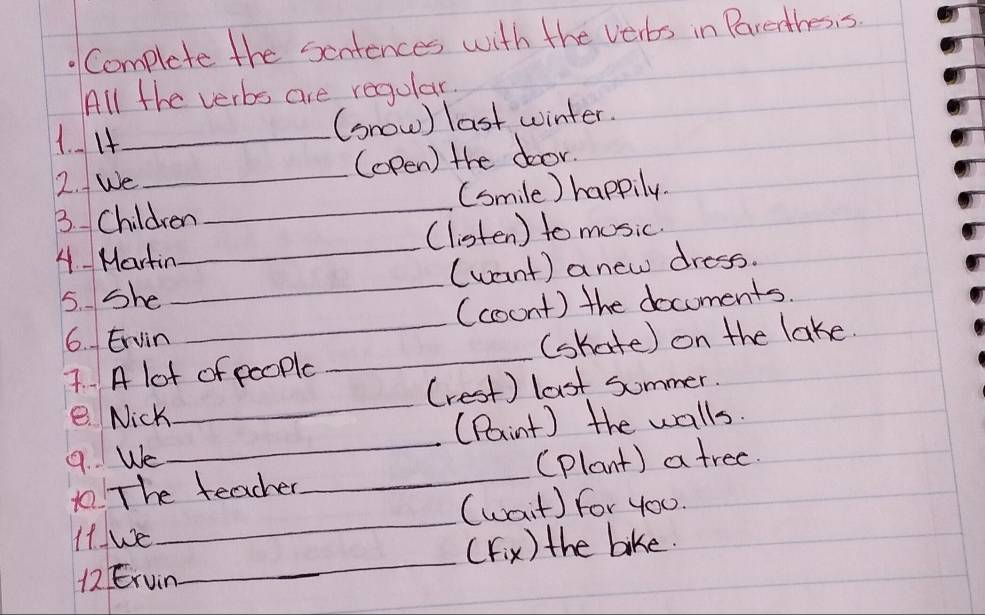 • Complete the sentences with the verbs in Parenthesis.
All the verbs are regular.
1.- It ____________ (snow) last winter.
2.- We ____________ (open) the door.
3.- Children ____________ (smile) happily.
4.- Martin ____________ (listen) to music.
5.- She ____________ (want) a new dress.
6.- Ervin ____________ (count) the documents.
7.- A lot of people ____________ (skate) on the lake.
8.- Nick ____________ (rest) last summer.
9.- We ____________. (Paint) the walls.
10.- The teacher ____________ (plant) a tree.
11.- We ____________ (wait) for you.
12.- Ervin ____________ (fix) the bike.